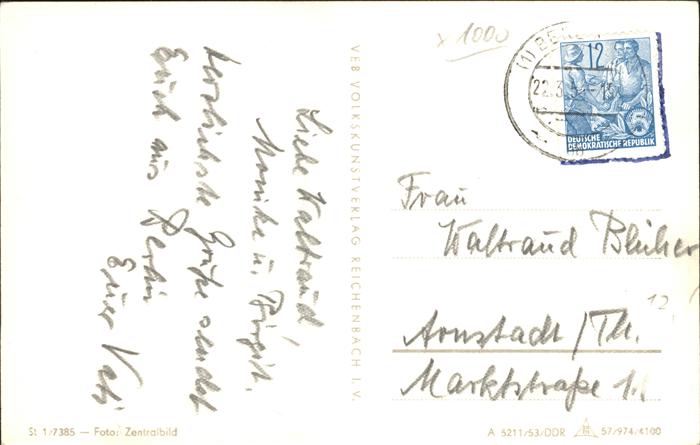 Liebe Waltraud
Monika u. Birgit.
herzlichste Grüße sendet
Euch aus Berlin
Euer Vati
VEB VOLKSKUNSTVERLAG REICHENBACH I. V.
St 1/7385 — Foto: Zentralbild
x 1000
(1) BERLIN
22.3.
12
5
DEUTSCHE
DEMOKRATISCHE REPUBLIK
Frau
Waltraud Blüher
12
Arnstadt/Th.
Marktstraße 1.
A 5211/53/DDR
57/974/4100